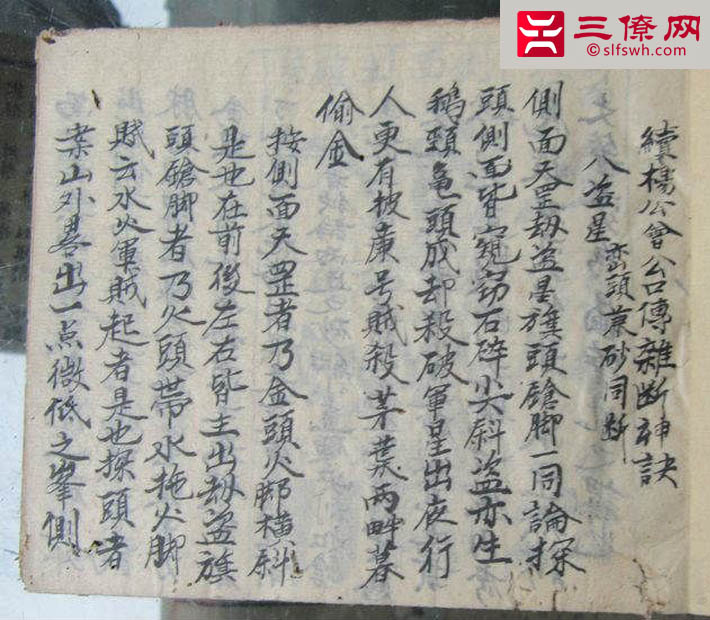 三僚网
©slfswh.com
續楊公曾公口傳雜斷神訣
八盗星 巒頭兼砂同斷
側面天罡劫盗星旗頭鎗脚一同論探
頭側面皆窺窃石碎尖斜盗亦生
鵝頸龟頭成却殺破軍星出夜行
人更有披廉号賊殺茅葉两畔暮
偷金
按側面天罡者乃金頭火脚横斜
是也在前後左右皆主出劫盗旗
頭鎗脚者乃火頭带水拖火脚
賦云水火軍賊起者是也探頭者
案山外畧出一点微低之峯側